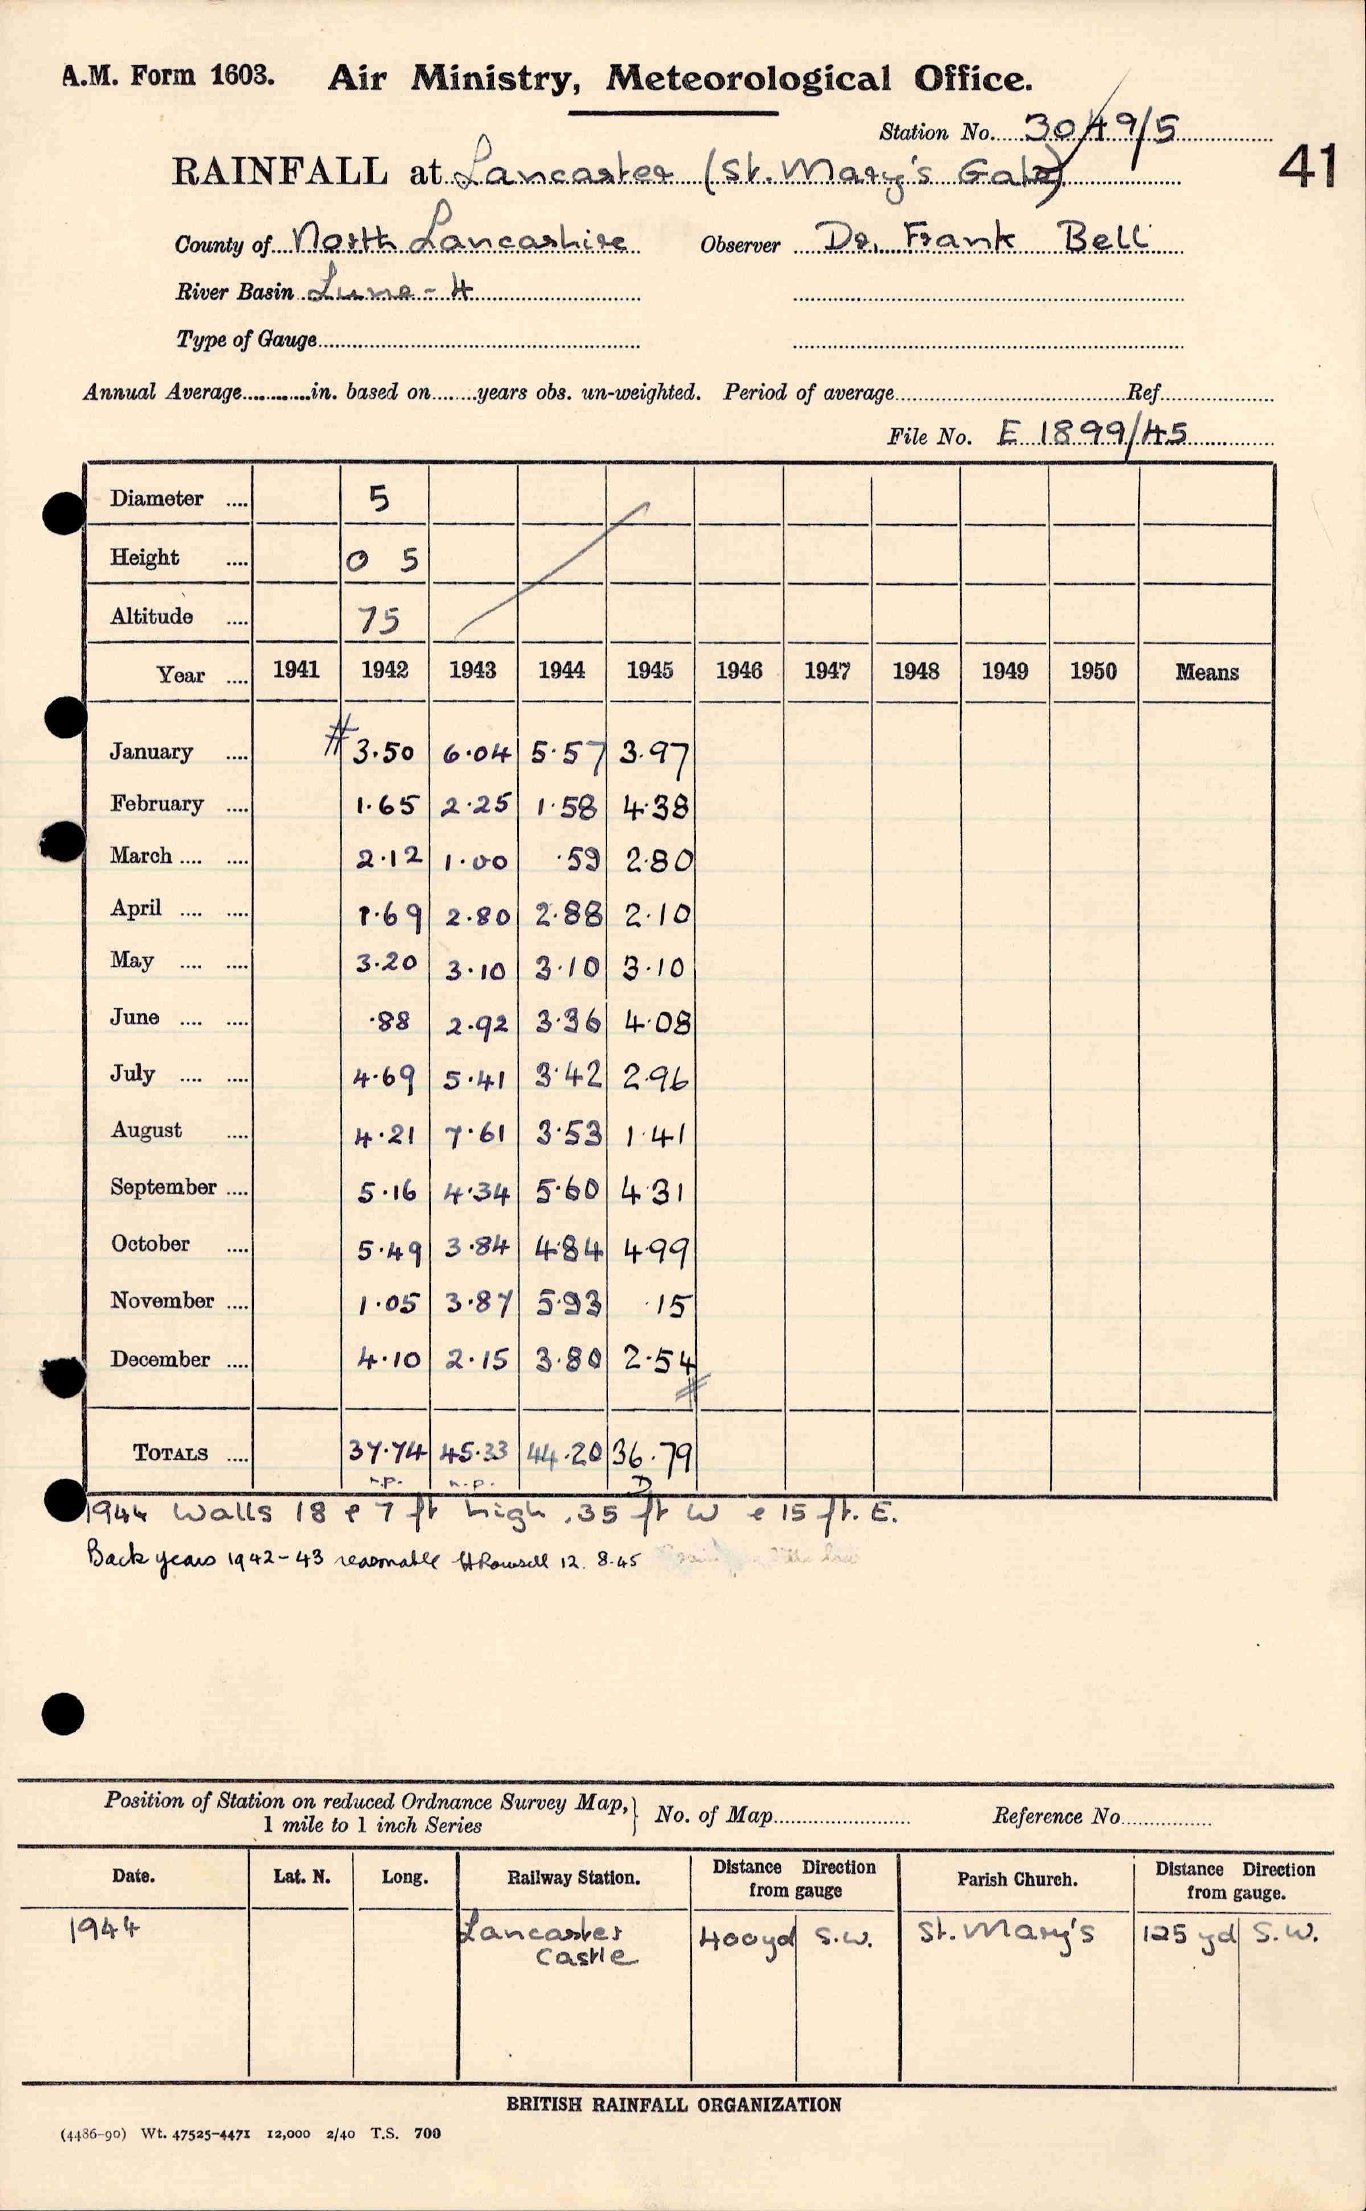 A.M. Form 1603. Air Ministry, Meteorological Office.
Station No. 3049/5
41
RAINFALL at Lancaster (St. Mary's Gate)
County of North Lancashire Observer Dr. Frank Bell
River Basin Lune - 4
Type of Gauge
Annual Average in. based on years obs. un-weighted. Period of average Ref.
File No. E 1899/45
Diameter 5
Height 0 5
Altitude 75
Year 1941 1942 1943 1944 1945 1946 1947 1948 1949 1950 Means
January 3.50 6.04 5.57 3.97
February 1.65 2.25 1.58 4.38
March 2.12 1.00 .59 2.80
April 1.69 2.80 2.88 2.10
May 3.20 3.10 3.10 3.10
June .88 2.92 3.36 4.08
July 4.69 5.41 3.42 2.96
August 4.21 7.61 3.53 1.41
September 5.16 4.34 5.60 4.31
October 5.49 3.84 4.84 4.99
November 1.05 3.87 5.93 .15
December 4.10 2.15 3.80 2.54
TOTALS 37.74 45.33 44.20 36.79
n.p. n.p. D
1944 Walls 18 & 7 ft high, 35 ft W & 15 ft. E.
Back years 1942-43 reasonable 12.8.45
Position of Station on reduced Ordnance Survey Map, 1 mile to 1 inch Series } No. of Map Reference No
Date. Lat. N. Long. Railway Station. Distance Direction from gauge Parish Church. Distance Direction from gauge.
1944 Lancaster Castle 400 yd S.W. St. Mary's 125 yd S.W.
BRITISH RAINFALL ORGANIZATION
(4486-90) Wt. 47525-4471 12,000 2/40 T.S. 700